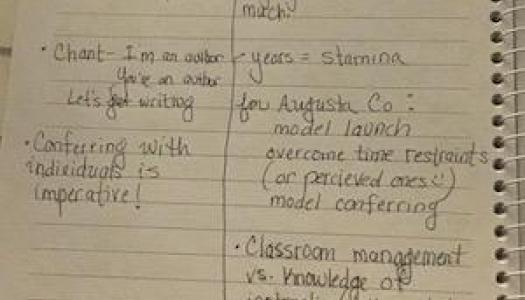 much?
• Chant - I'm an author
You're an author
Let's get writing
• Conferring with
individuals is
imperative!
years = stamina
for Augusta Co:
model launch
overcome time restraints
(or percieved ones :))
model conferring
• Classroom management
vs. knowledge of